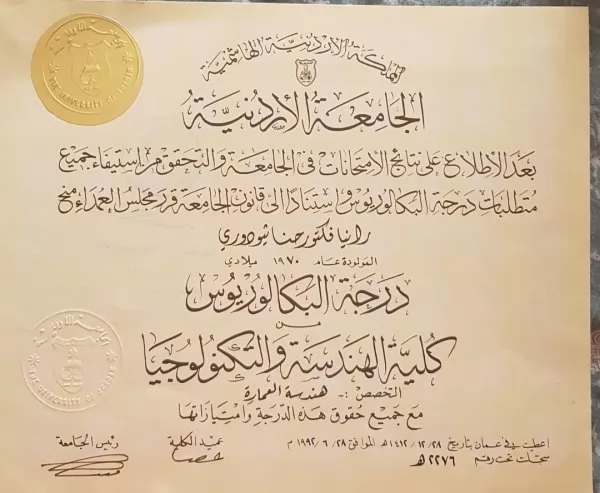 المملكة الأردنية الهاشمية
الجامعة الأردنية
بعد الأطلاع على نتائج الامتحانات في الجامعة والتحقق من إستيفاء جميع
متطلبات درجة البكالوريوس واستنادا الى قانون الجامعة قرر مجلس العمداء منح
رانيا فكتور حنا شودوري
المولودة عام ١٩٧٠ ميلادي
درجة البكالوريوس
من
كلية الهندسة والتكنولوجيا
التخصص :- هندسة العمارة
مع جميع حقوق هذه الدرجة وامتيازاتها
اعطيت في عمان بتاريخ ٢٨ / ١٢ / ١٤١٢ هـ الموافق ٢٨ / ٦ / ١٩٩٢ م
سجلت تحت رقم ٢٢٧٦ هـ
عميد الكلية
رئيس الجامعة
THE UNIVERSITY OF JORDAN
THE UNIVERSITY OF JORDAN